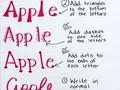 Apple
② Add triangles
to the bottom
of the letters
Apple
Add dashes to
one side of
the letters
Apple
Add dots to
the ends of
each letter
Apple
① Write in
normal